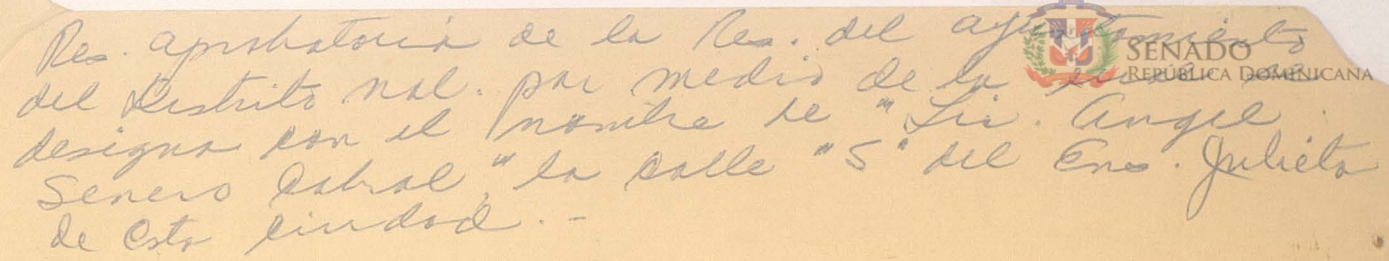 Res. aprobatoria de la Res. del ayuntamiento
del Distrito Nal. por medio de la cual se
designa con el nombre de "Lic. Angel
Senero Cabral," la calle "S" del Ens. Julieta
de esta ciudad.-
SENADO
REPÚBLICA DOMINICANA